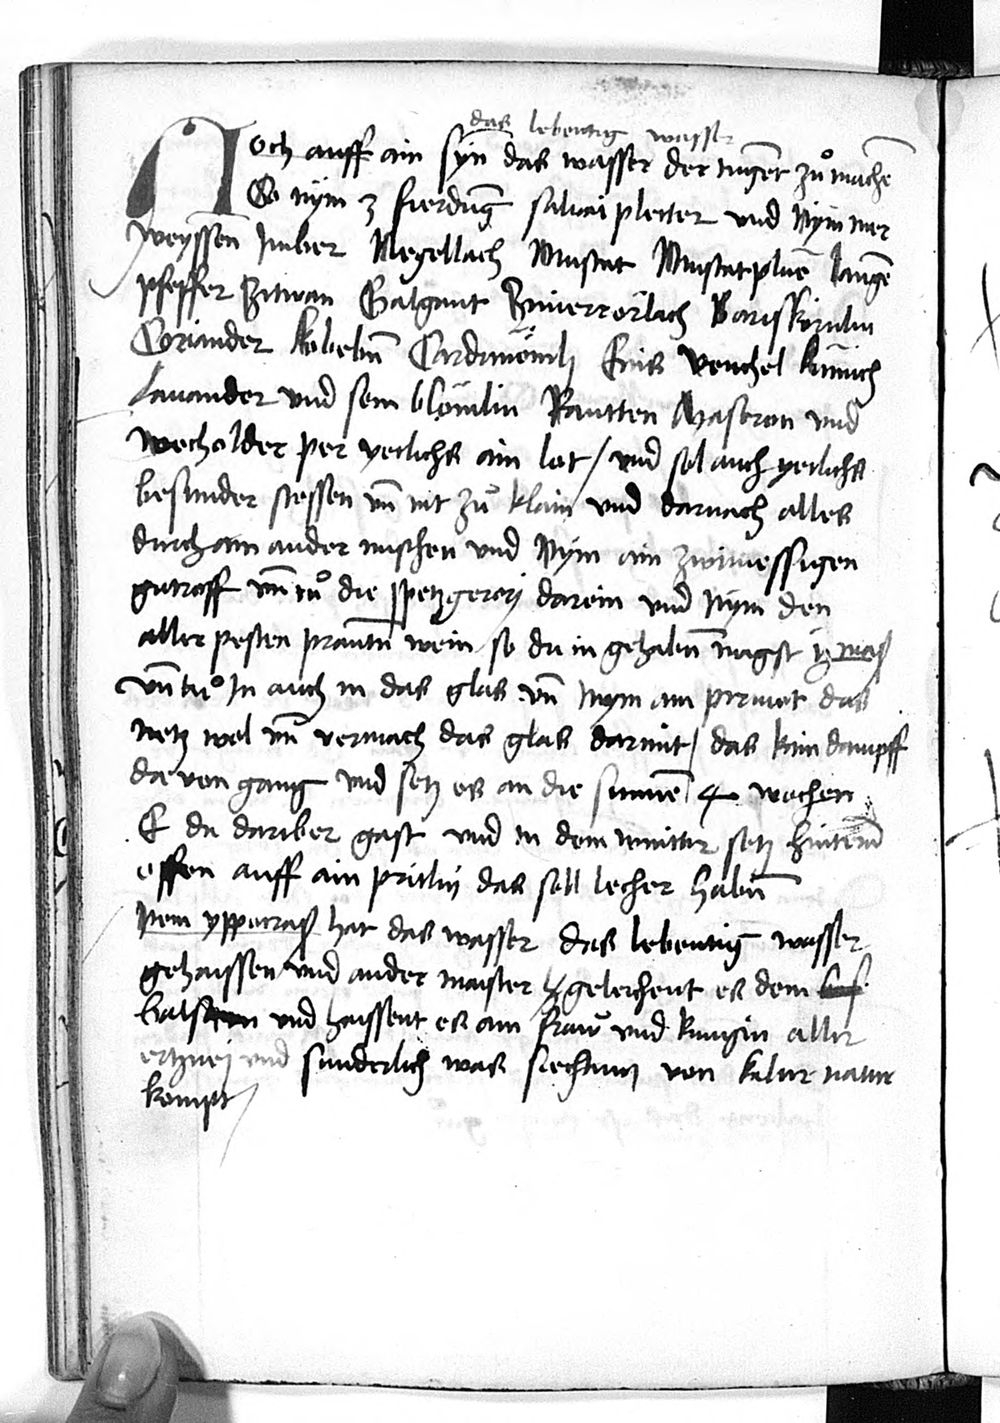 das lebentig wasser
Noch auff ain syn das wasser der tugent zů machē
So nym 3 fierdung saluai pletter und Nym mer
weyssen Imber Negellach Mustat Mustatpluē langē
pfeffer Zitwan Galgant Zimerrörlach Bariskörnlin
Coriander kobelin Cardimömli Enis venchel kümich
lauander und sein blömlin Rautten Maseron und
wecholder per yetlichs ain lot / und sol auch yetlichs
besunder stossen uñ nit zů klain und darnach alles
durch ain ander mischen und Nym ain zwimessigen
gutroff uñ tů die spetzgerey darein und Nym den
aller pesten prantñ wein so du in gehabñ magst
uñ tů In auch in das glas uñ Nym ain permet das
netz wol uñ vermach das glas darmit / das kain dampff
da von gang und setz es an die sunnē 4 wochen
E du dariber gast und in dem winttter setz hintern
offen auff ain pritlin das soll lecher habñ
Item yppocras hat das wasser das lebentig wasser
gehaissen und ander maister geleichent es dem
balsam und haissent es ain fraw und kungin aller
ertznei und sunderlich was siechtum von kelter natur
kompt /